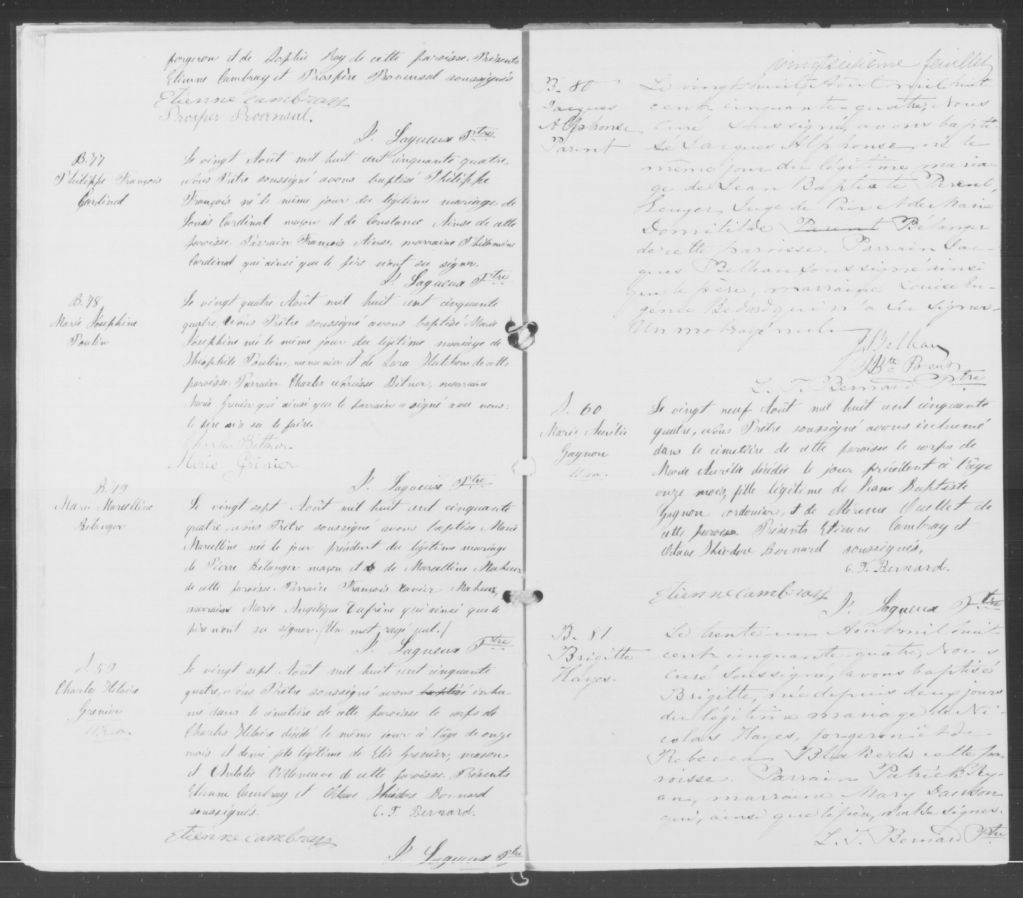 forgeron et de Sophie Roy de cette paroisse. Présents
Etienne Cambray et Prospère Provensal soussignés
Etienne Cambray
Prosper Provensal.
P. Lagueux Ptre
B. 77
Philippe François
Cardinal
Le vingt Août mil huit cent cinquante quatre,
nous Prêtre soussigné avons baptisé Philippe
François né le même jour du légitime mariage de
Louis Cardinal maçon et de Constance Ainse de cette
paroisse. Parrain François Ainse, marraine Philomène
Cardinal qui ainsi que le père n'ont su signer.
P. Lagueux Ptre
B. 78
Marie Joséphine
Poulin
Le vingt quatre Août mil huit cent cinquante
quatre, nous Prêtre soussigné avons baptisé Marie
Joséphine née le même jour du légitime mariage de
Théophile Poulin, menuisier et de Lara de cette
paroisse. Parrain Charles Narcisse Bitner, marraine
Marie Grenier qui ainsi que le parrain a signé avec nous:
le père n'a su le faire.
Charles Bittner
Marie Grenier
P. Lagueux Ptre
B. 79
Marie Marcelline
Bélanger
Le vingt sept Août mil huit cent cinquante
quatre, nous Prêtre soussigné avons baptisé Marie
Marcelline née le jour précédent du légitime mariage
de Pierre Bélanger maçon et de Marcelline Maheux
de cette paroisse. Parrain François Xavier Maheux,
marraine Marie Angélique Dufrêne qui ainsi que le
père n'ont su signer. (Un mot rayé nul.)
P. Lagueux Ptre
S. 59
Charles Hilaire
Grenier
Le vingt sept Août mil huit cent cinquante
quatre, nous Prêtre soussigné avons baptisé inhu-
mé dans le cimetière de cette paroisse le corps de
Charles Hilaire décédé le même jour à l'âge de onze
mois et demi fils légitime de Elie Grenier, maçon
et Natalie Villeneuve de cette paroisse. Présents
Etienne Cambray et Octave Théodore Bernard
soussignés. O. T. Bernard.
Etienne Cambray
P. Lagueux Ptre
vingtseptième feuillet
B. 80
Jacques
Alphonse
Parent
Le vingt huit Août mil huit
cent cinquante-quatre, Nous
Curé soussigné, avons bapti-
sé Jacques Alphonse, né le
même jour du légitime maria-
ge de Jean Baptiste Parent,
Ecuyer, Juge de Paix et de Marie
Domitilde Parent Bélanger
de cette paroisse. Parrain Jac-
ques Belleau soussigné ainsi
que le père, marraine Louise Eu-
génie Bedard qui n'a su signer.
Un mot rayé nul.
J. Belleau
J. Bte Parent
L. T. Bernard Ptre
S. 60
Marie Aurélie
Gagnon
Le vingt neuf Août mil huit cent cinquante
quatre, nous Prêtre soussigné avons inhumé
dans le cimetière de cette paroisse le corps de
Marie Aurélie décédée le jour précédent à l'âge
onze mois, fille légitime de Jean Baptiste
Gagnon cordonier, et de Ouellet de
cette paroisse Présents Etienne Cambray et
Octave Théodore Bernard soussignés,
O. T. Bernard.
Etienne Cambray
P. Lagueux Ptre
B. 81
Brigitte
Hayes.
Le trente un Août mil huit
cent cinquante-quatre, Nous
Curé soussigné, avons baptisé
Brigitte, née depuis deux jours
du légitime mariage de Ni-
colas Hayes, forgeron et de
Rebecca de cette pa-
roisse. Parrain Patrick Ry-
an, marraine Mary Dawson
qui, ainsi que le père, n'ont su signer.
L. T. Bernard Ptre